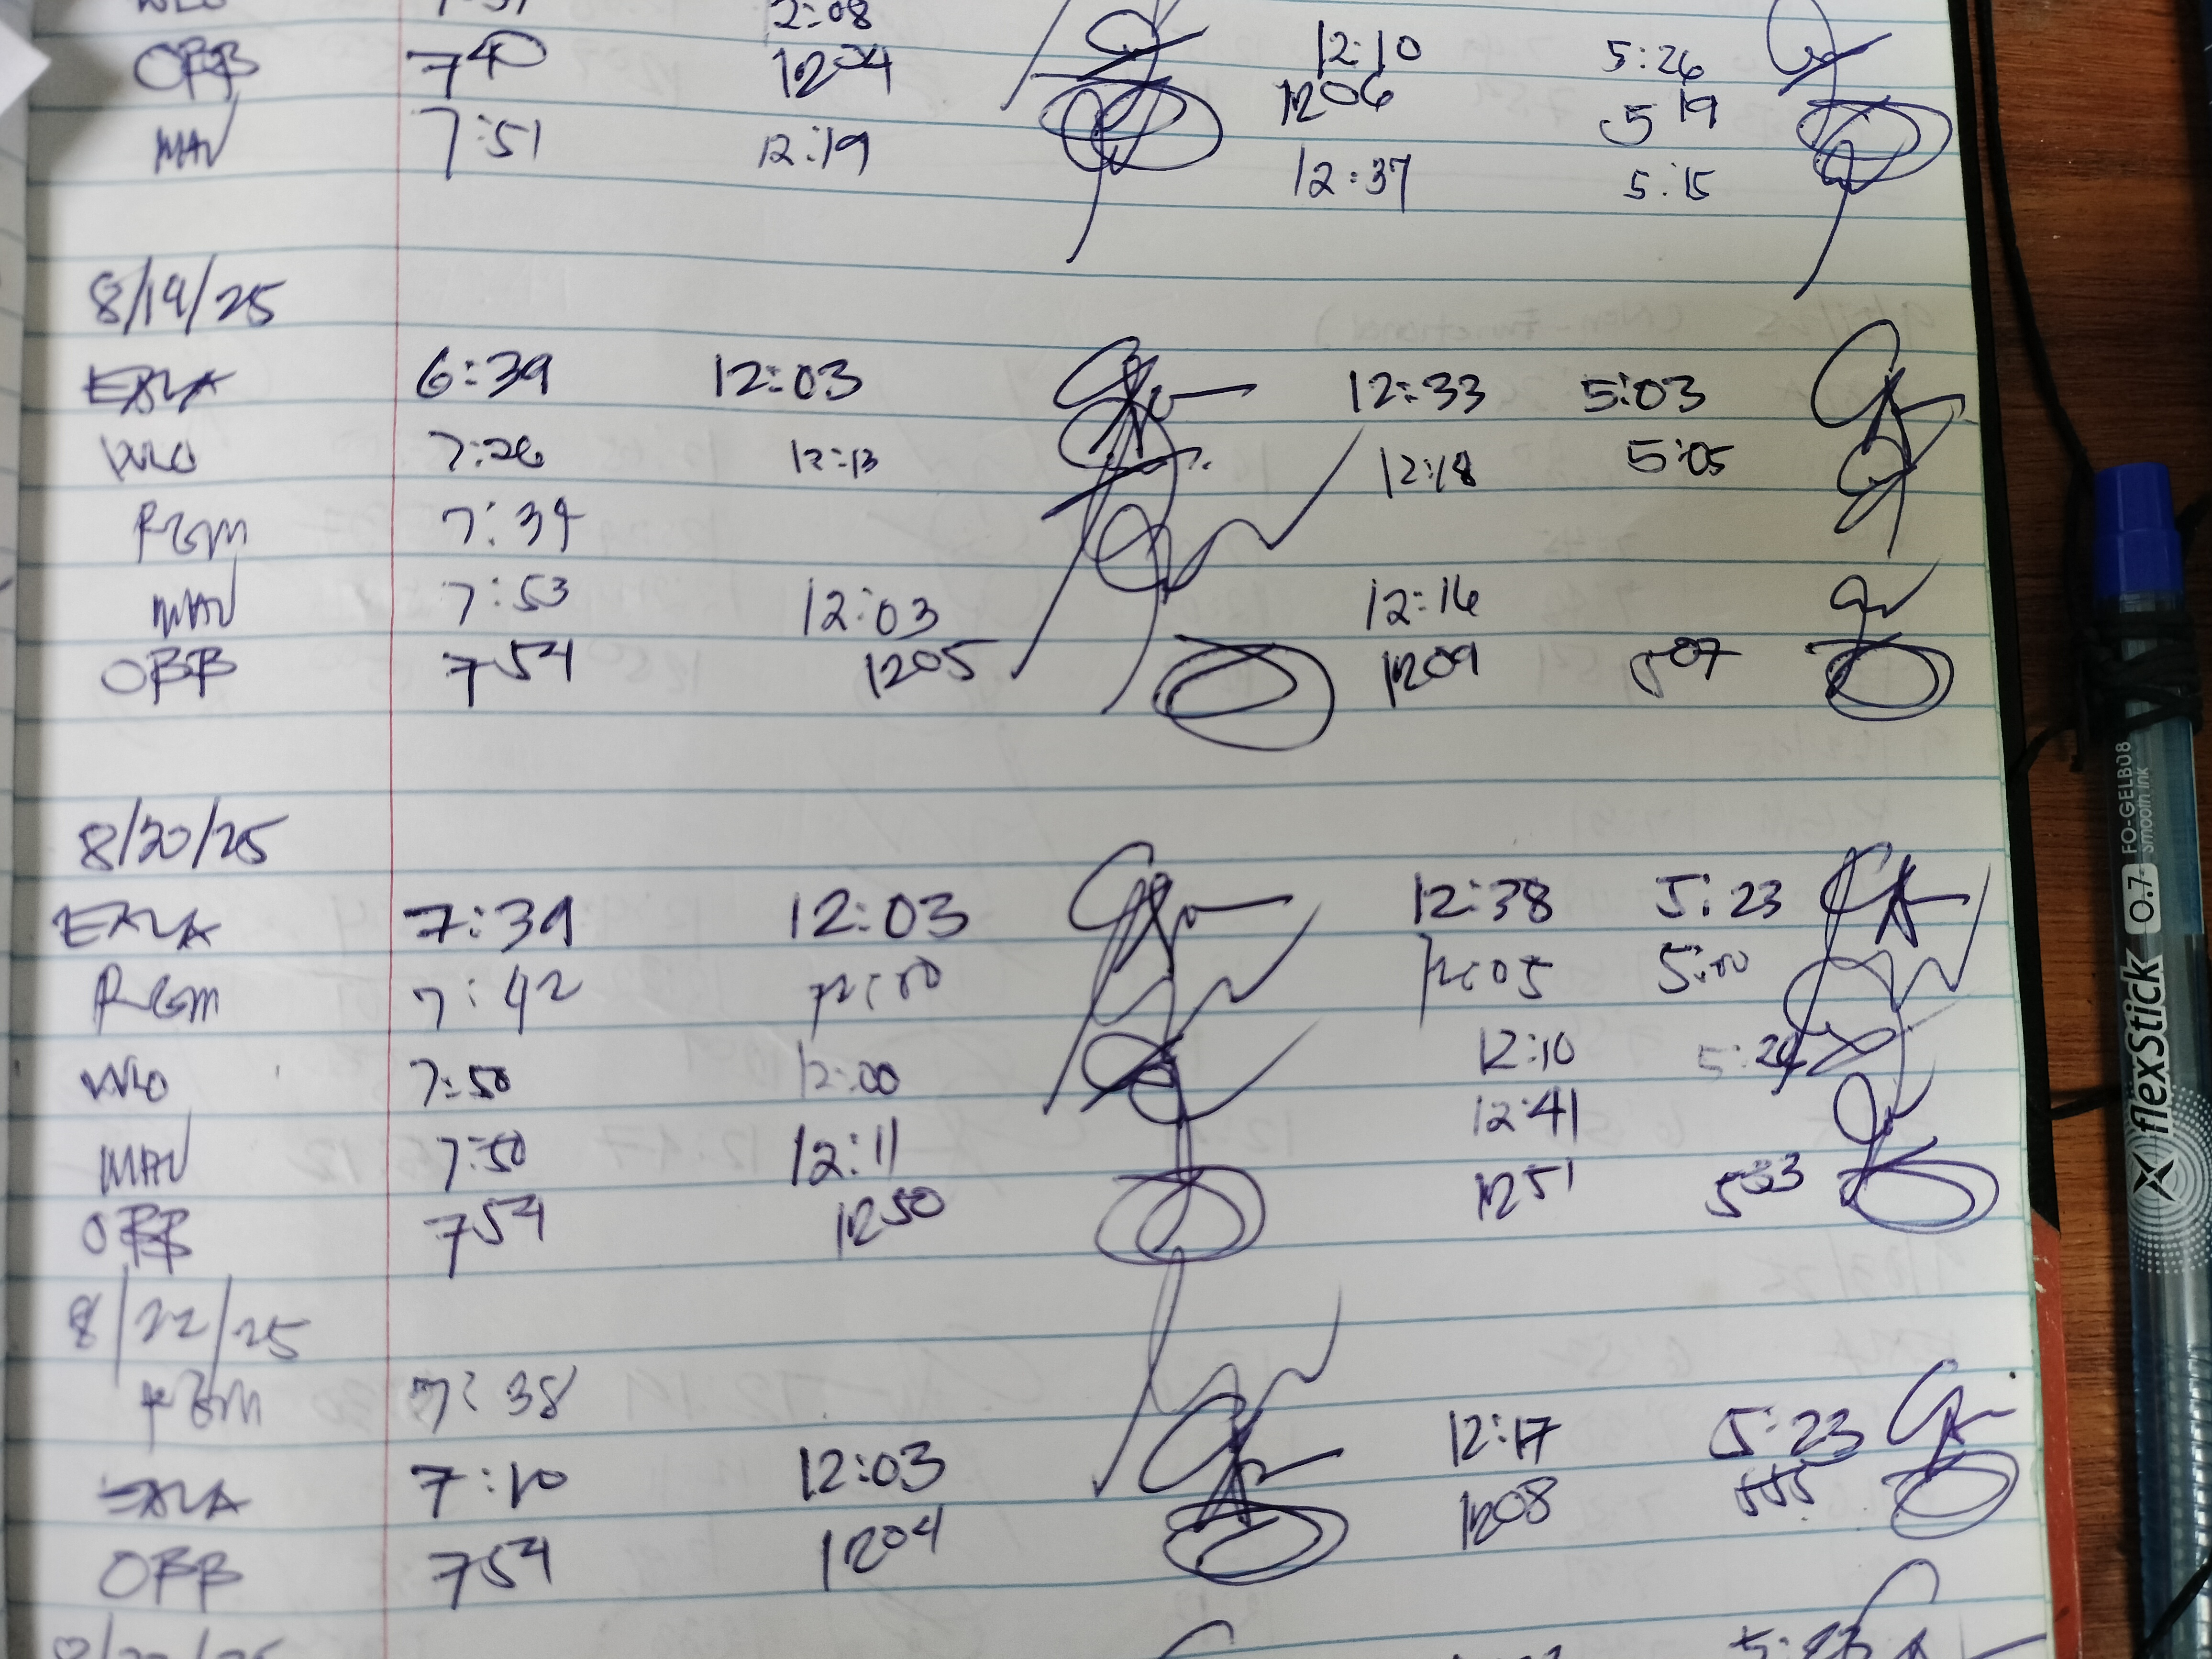 2:08
OBB 7 40 12 04 12:10 5:26
12 06 5 19
MAV 7:51 12:19 12:37 5:15
8/19/25
EXLA 6:39 12:03 12:33 5:03
WLO 7:26 12:13 12:18 5:05
RGM 7:34
MAV 7:53 12:03 12:16
OBB 7 54 12 05 12 09 5 07
8/20/25
EXLA 7:39 12:03 12:38 5:23
RGM 7:42 12:00 12:05 5:00
WLO 7:50 12:00 12:10
MAV 7:50 12:11 12:41
OBB 7 54 12 50 12 51 5 33
8/22/25
RGM 7:38
EXLA 7:10 12:03 12:17 5:23
OBB 7 54 12 04 12 08
flexstick 0.7 FO-GELB08
smooth ink